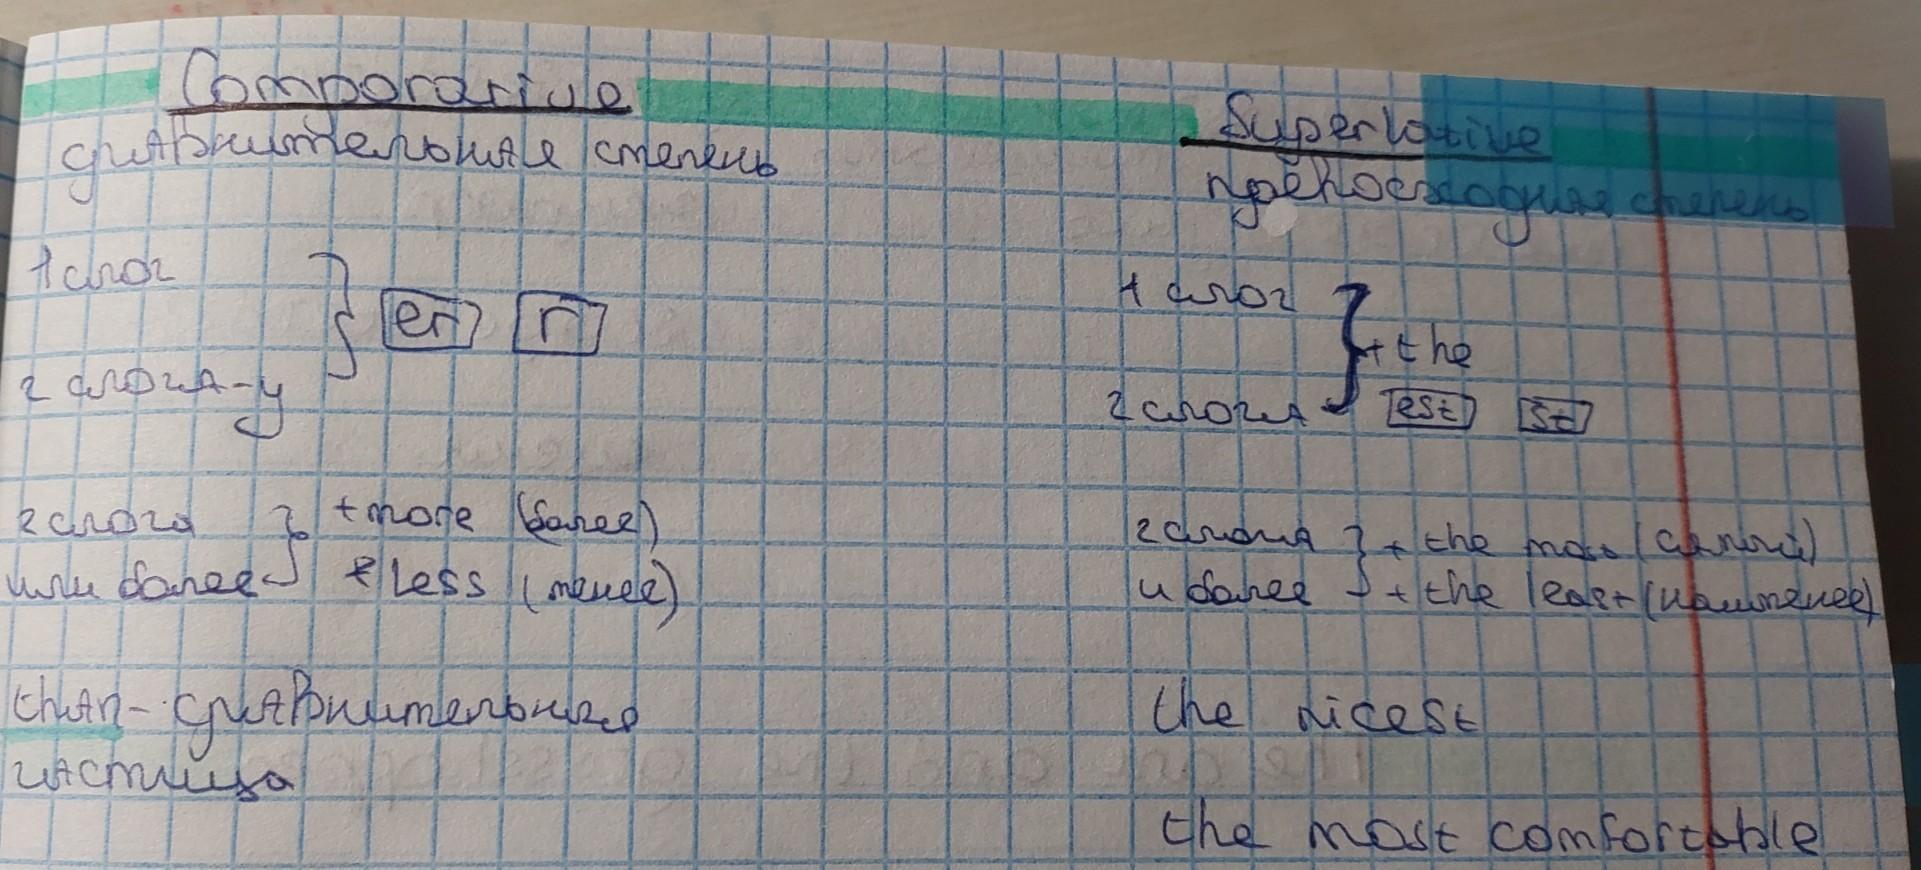 Comparative
Superlative
сравнительная степень
превосходная степень
1 слог
er r
2 слога-y
1 слог
+ the
2 слога est st
2 слога + more (более)
или более + Less (менее)
2 слога + the most (самый)
и более + the least (наименее)
than - сравнительная
частица
the nicest
the most comfortable